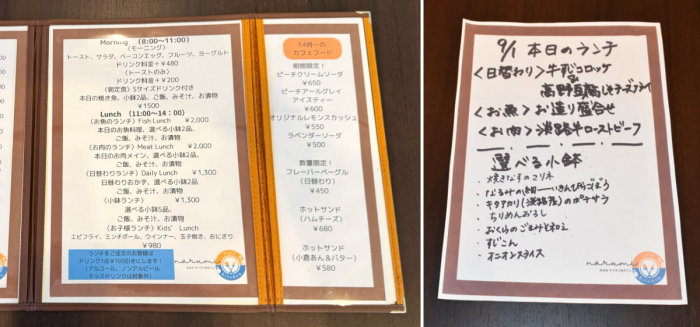 Morning (8:00～11:00)
(モーニング)
トースト、サラダ、ベーコンエッグ、フルーツ、ヨーグルト
ドリンク料金＋¥480
(トーストのみ)
ドリンク料金＋¥200
(朝定食) Sサイズドリンク付き
本日の焼き魚、小鉢2品、ご飯、みそ汁、お漬物
¥1500
Lunch (11:00～14：00)
(お魚のランチ) Fish Lunch ¥2,000
本日のお魚料理、選べる小鉢2品、
ご飯、みそ汁、お漬物
(お肉のランチ) Meat Lunch ¥2,000
本日のお肉メイン、選べる小鉢2品、
ご飯、みそ汁、お漬物
(日替わりランチ) Daily Lunch ¥1,300
日替わりおかず、選べる小鉢2品
ご飯、みそ汁、お漬物
(小鉢ランチ) ¥1,300
選べる小鉢5品、
ご飯、みそ汁、お漬物
(お子様ランチ) Kids' Lunch
エビフライ、ミンチボール、ウインナー、玉子焼き、おにぎり
¥980
ランチをご注文のお客様は
ドリンク1杯¥100引きにします！
(アルコール、ノンアルビール
キッズドリンクは対象外)
narumi
14時～の
カフェフード
期間限定！
ピーチクリームソーダ
¥650
ピーチアールグレイ
アイスティー
¥600
オリジナルレモンスカッシュ
¥550
ラベンダーソーダ
¥500
数量限定！
フレーバーベーグル
(日替わり)
¥450
ホットサンド
(ハムチーズ)
¥680
ホットサンド
(小倉あん＆バター)
¥580
9/1 本日のランチ
＜日替わり＞牛すじコロッケ
高野豆腐しそチーズフライ
＜お魚＞お造り盛合せ
＜お肉＞淡路牛ローストビーフ
選べる小鉢
・焼きなすのマリネ
・キタアカリ(淡路産)のポテサラ
・ちりめんおろし
・おくらのごまみそ和え
・すじこん
・オニオンスライス
narumi